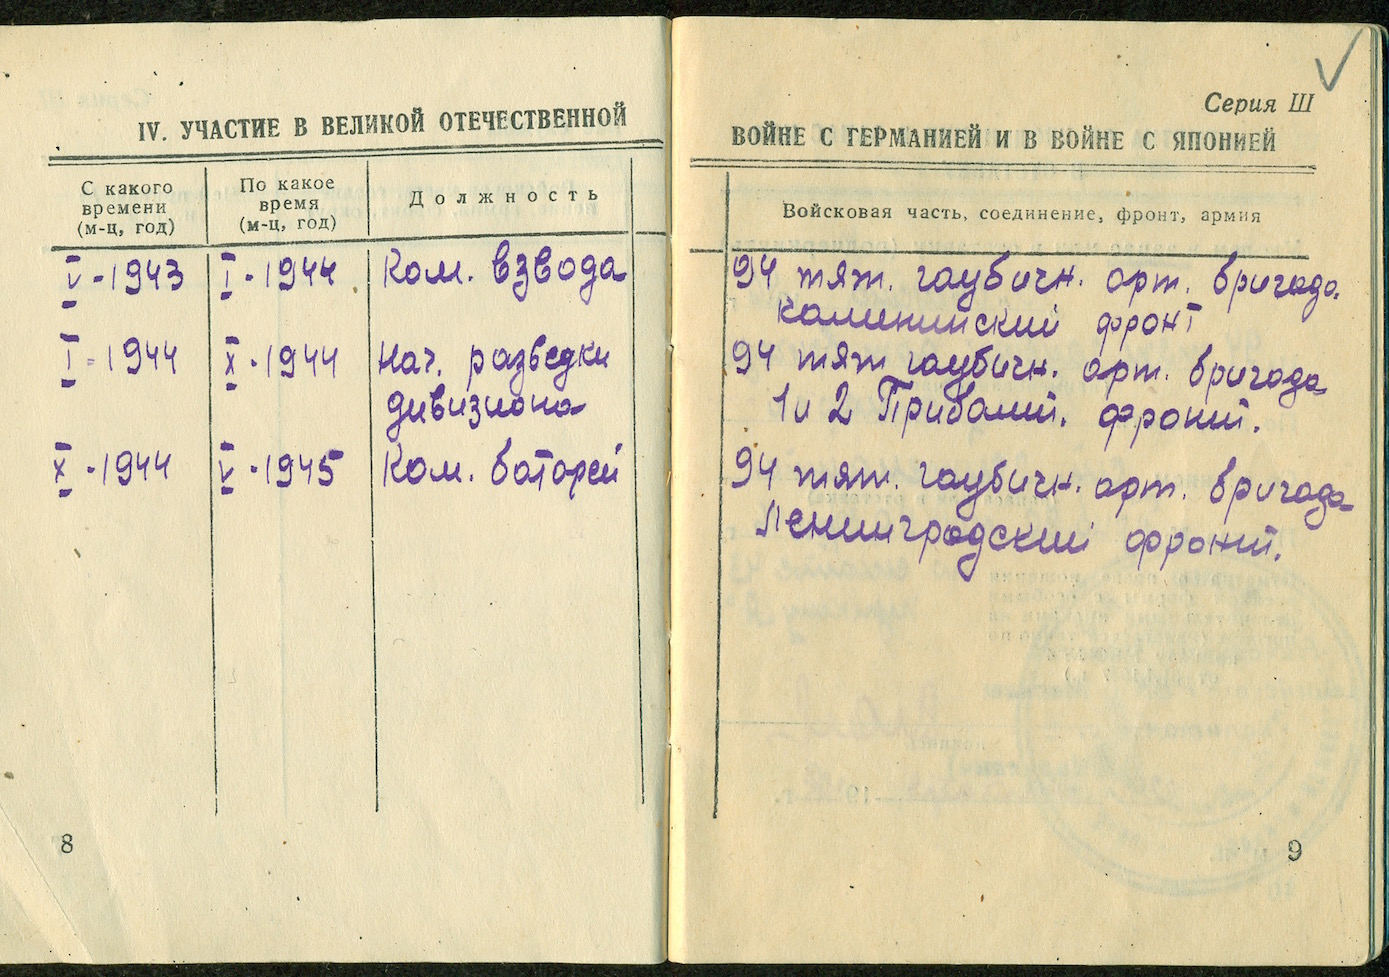 IV. УЧАСТИЕ В ВЕЛИКОЙ ОТЕЧЕСТВЕННОЙ
С какого
времени
(м-ц, год)
По какое
время
(м-ц, год)
Должность
V-1943
I-1944
Ком. взвода
I-1944
X-1944
Нач. разведки
дивизиона
X-1944
V-1945
Ком. батареи
8
Серия III
ВОЙНЕ С ГЕРМАНИЕЙ И В ВОЙНЕ С ЯПОНИЕЙ
Войсковая часть, соединение, фронт, армия
94 тяж. гаубичн. арт. бригада.
Калининский фронт
94 тяж гаубичн. арт. бригада
1 и 2 Прибалт. фронт.
94 тяж. гаубичн. арт. бригада
Ленинградский фронт.
9